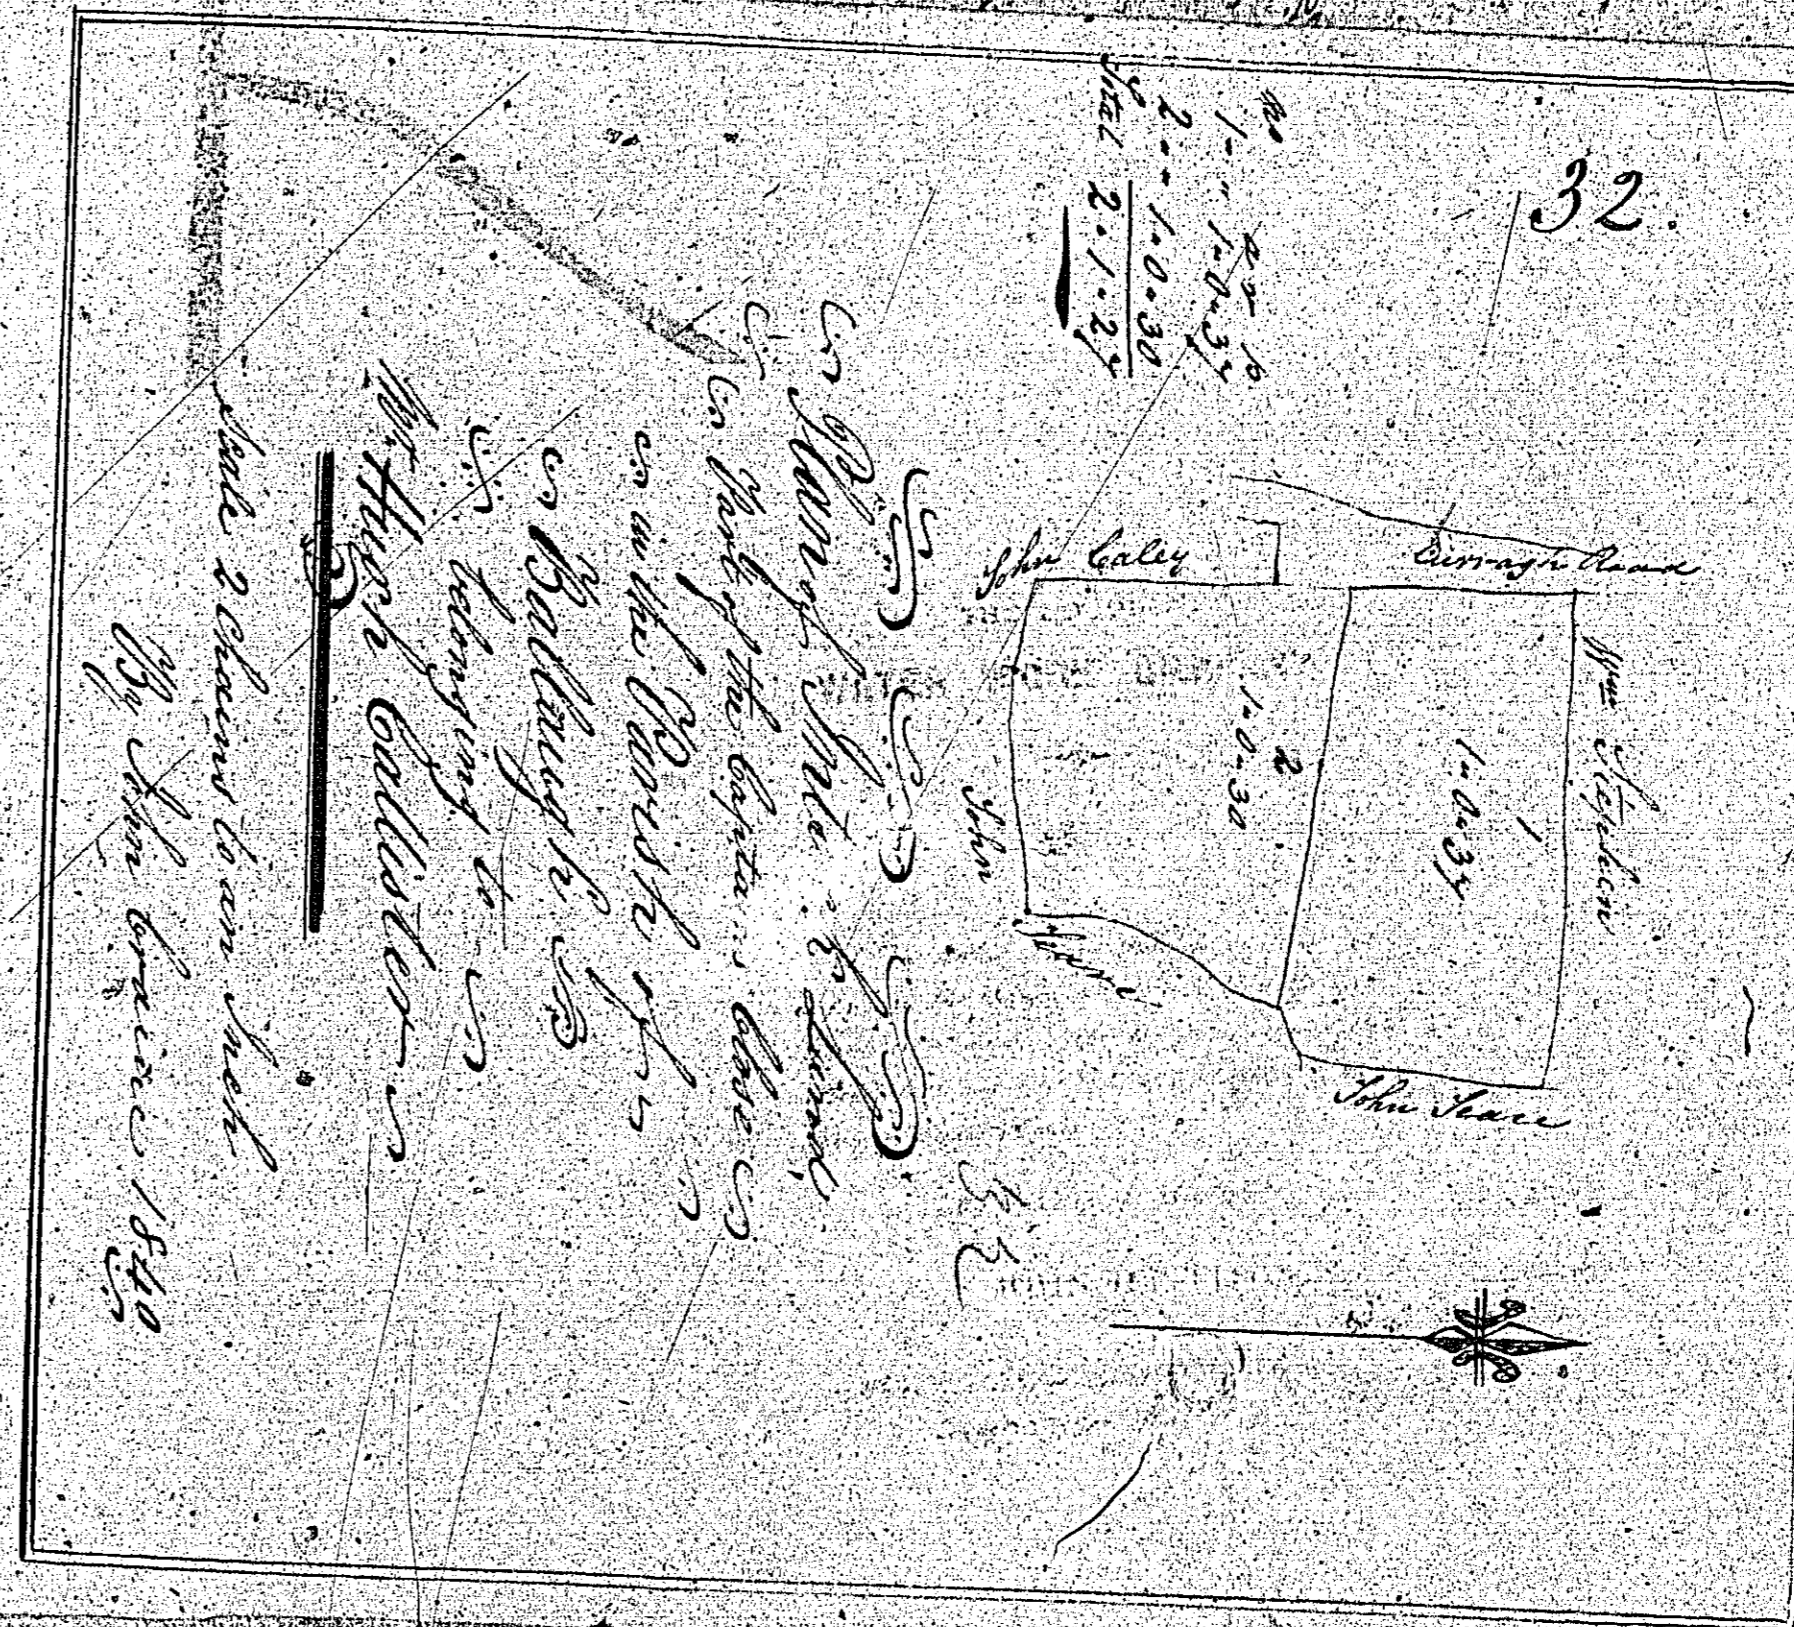 32.
No A R P
1 - - 1 - 0 - 37
2 - - 1 - 0 - 30
Total 2 - 1 - 27
Curragh Road
John Caley
Wm Stephen
1
1 - 0 - 37
2
1 - 0 - 30
John
John Teare
A Plan of Land
Part of the Captains Close
in the Parish of
Ballaugh
belonging to
Mr Hugh Callister
Scale 2 Chains to an Inch
By John 1840